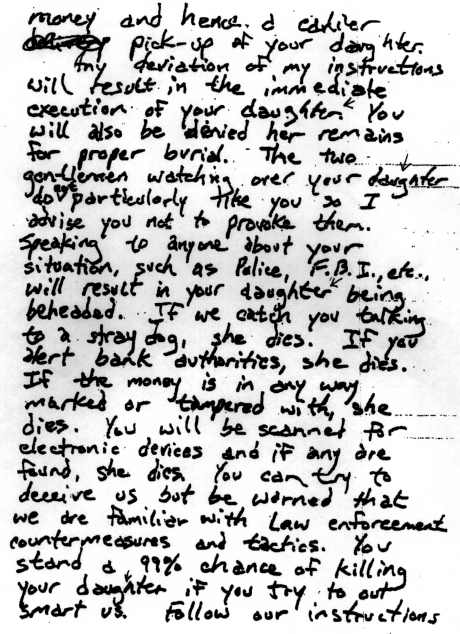 money and hence a earlier
delivery pick-up of your daughter.
Any deviation of my instructions
will result in the immediate
execution of your daughter. You
will also be denied her remains
for proper burial. The two
gentlemen watching over your daughter
do not particularly like you so I
advise you not to provoke them.
Speaking to anyone about your
situation, such as Police, F.B.I., etc.,
will result in your daughter being
beheaded. If we catch you talking
to a stray dog, she dies. If you
alert bank authorities, she dies.
If the money is in any way
marked or tampered with, she
dies. You will be scanned for
electronic devices and if any are
found, she dies. You can try to
deceive us but be warned that
we are familiar with Law enforcement
countermeasures and tactics. You
stand a 99% chance of killing
your daughter if you try to out
smart us. Follow our instructions